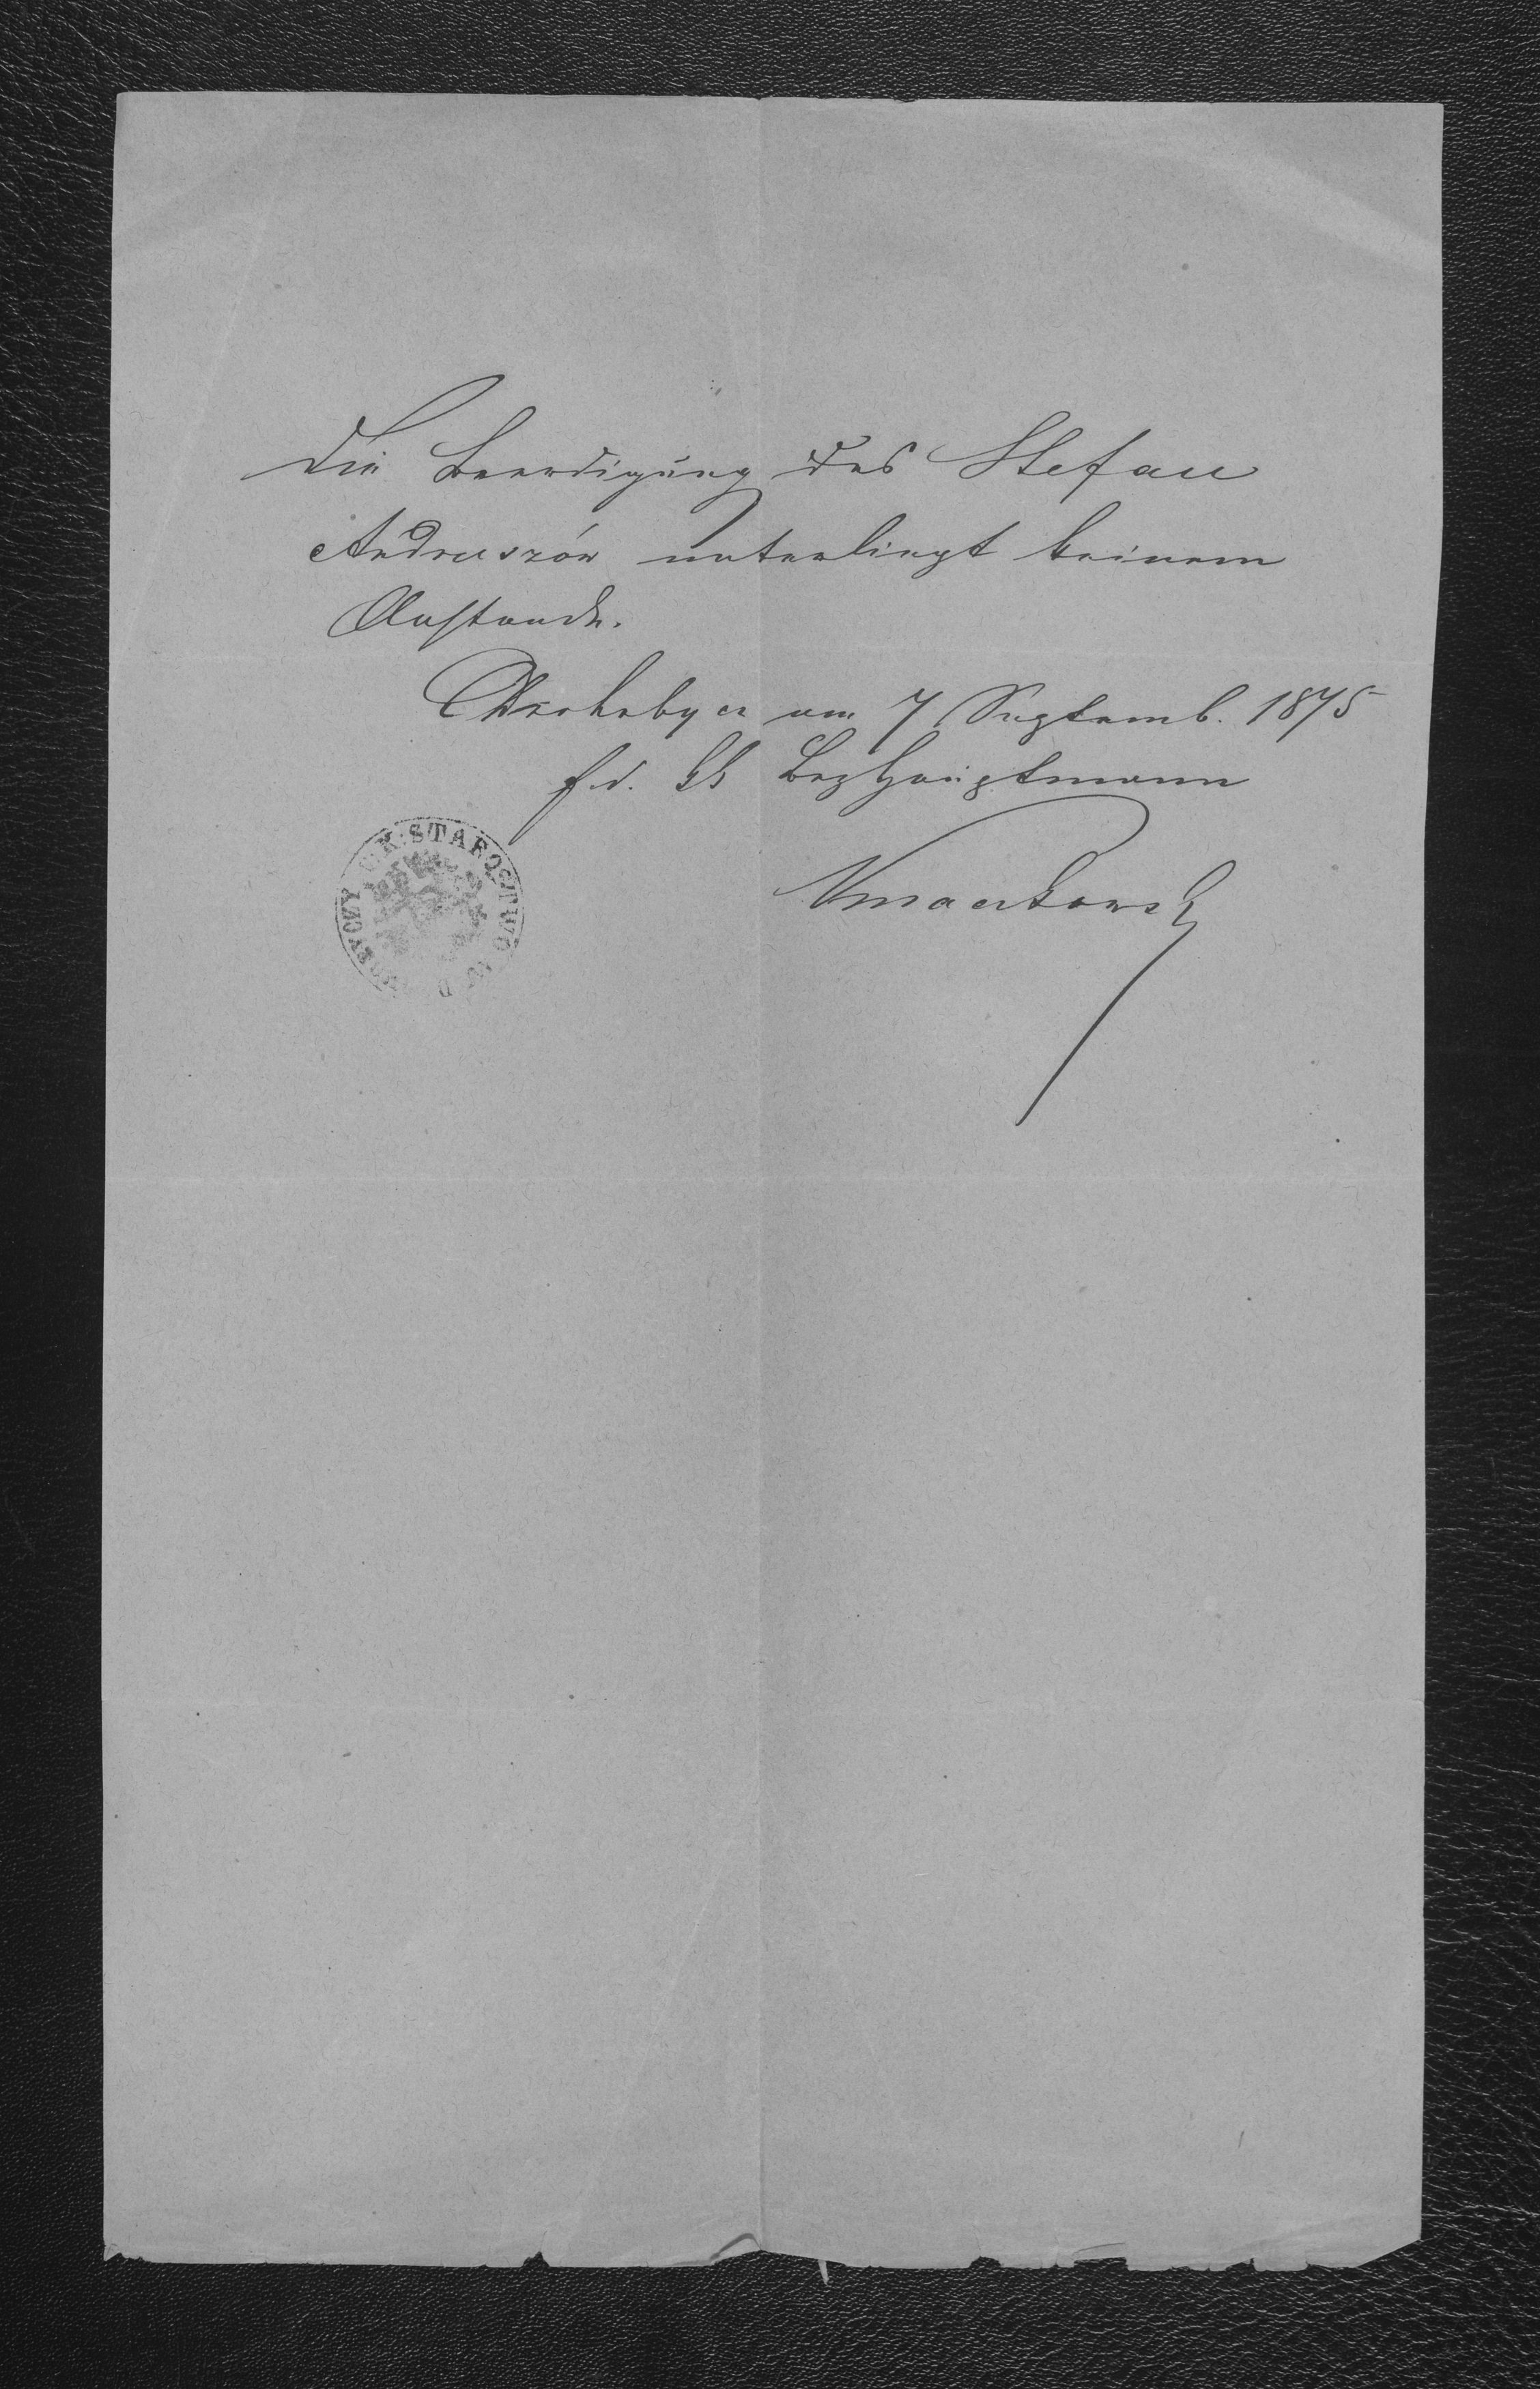 Die Beerdigung des Stefan
Andruszów unterliegt keinem
Anstande.
Drohobycz am 7 Septemb. 1875
f. d. kk BezHauptmann
C.K. STAROSTWO W D